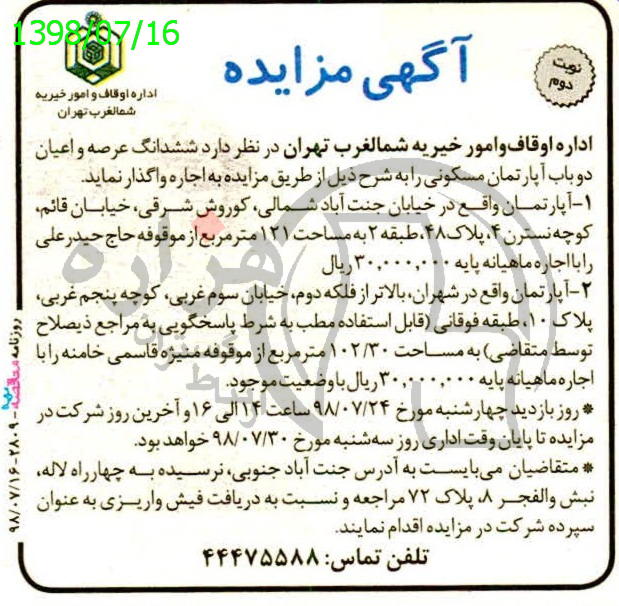 1398/07/16
اداره اوقاف و امور خیریه
شمالغرب تهران
آگهی مزایده
نوبت
دوم
اداره اوقاف وامور خیریه شمالغرب تهران در نظر دارد ششدانگ عرصه و اعیان
دو باب آپارتمان مسکونی را به شرح ذیل از طریق مزایده به اجاره واگذار نماید.
۱-آپارتمان واقع در خیابان جنت آباد شمالی، کوروش شرقی، خیابان قائم،
کوچه نسترن ۴، پلاک ۴۸، طبقه ۲ به مساحت ۱۲۱ متر مربع از موقوفه حاج حیدرعلی
را با اجاره ماهیانه پایه ۳۰,۰۰۰,۰۰۰ ریال
۲-آپارتمان واقع در شهران، بالاتر از فلکه دوم، خیابان سوم غربی، کوچه پنجم غربی،
پلاک ۱۰، طبقه فوقانی (قابل استفاده مطب به شرط پاسخگویی به مراجع ذیصلاح
توسط متقاضی) به مساحت ۱۰۲/۳۰ متر مربع از موقوفه منیژه قاسمی خامنه را با
اجاره ماهیانه پایه ۳۰,۰۰۰,۰۰۰ ریال با وضعیت موجود.
* روز بازدید چهارشنبه مورخ ۹۸/۰۷/۲۴ ساعت ۱۴ الی ۱۶ و آخرین روز شرکت در
مزایده تا پایان وقت اداری روز سه‌شنبه مورخ ۹۸/۰۷/۳۰ خواهد بود.
* متقاضیان می‌بایست به آدرس جنت آباد جنوبی، نرسیده به چهارراه لاله،
نبش والفجر ۸، پلاک ۷۲ مراجعه و نسبت به دریافت فیش واریزی به عنوان
سپرده شرکت در مزایده اقدام نمایند.
تلفن تماس: ۴۴۴۷۵۵۸۸
روزنامه مناقصه
۹۸/۰۷/۱۶-۲۸۰۹
هزاره